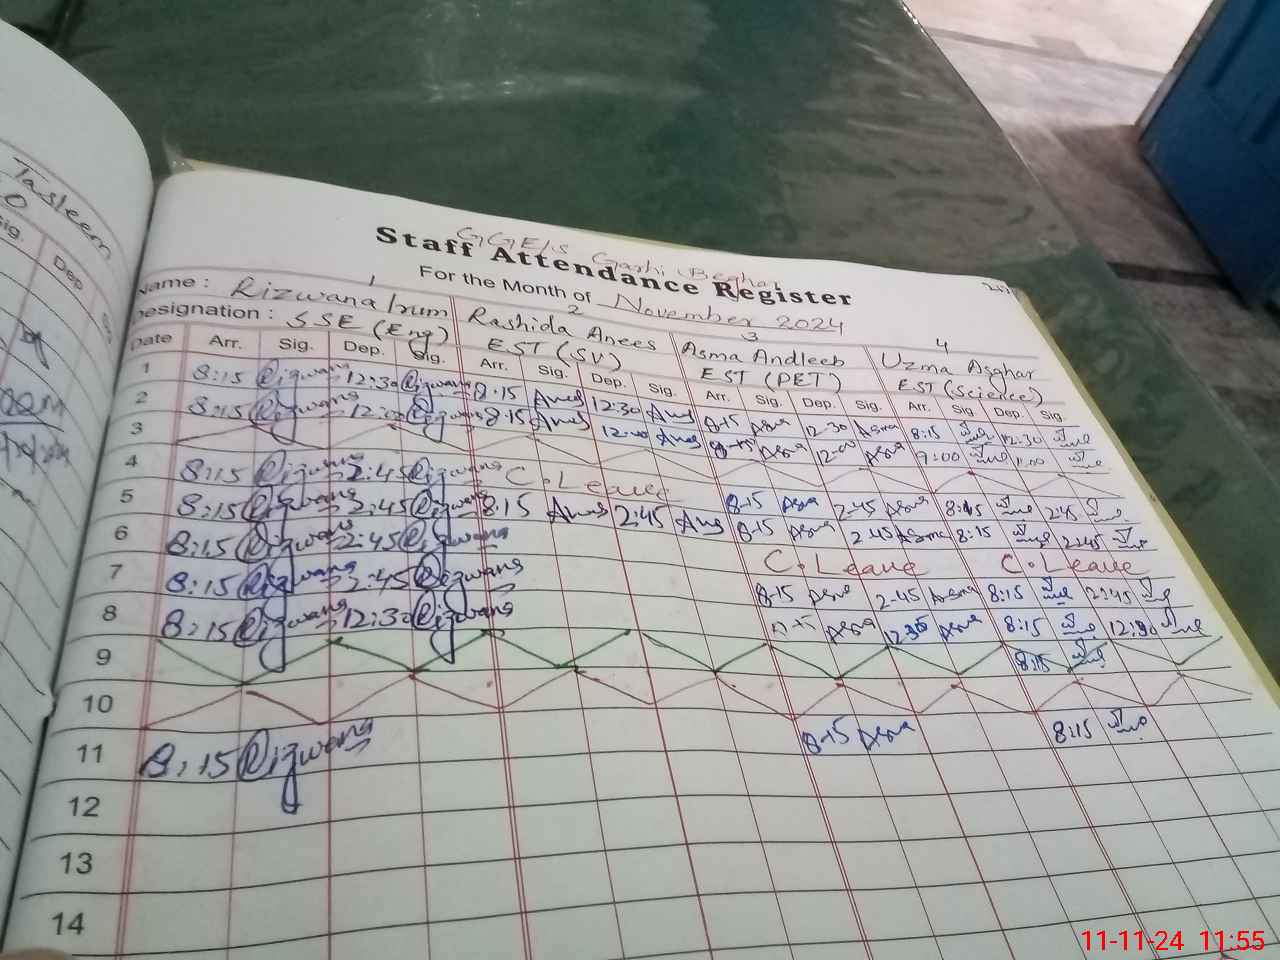 Tasleem
Sig.
Dep
GGE/S Garhi Beghal
Staff Attendance Register
For the Month of November 2024
1 2 3 4
Name : Rizwana Irum Rashida Anees Asma Andleeb Uzma Asghar
Designation : SSE (Eng) EST (SV) EST (PET) EST (Science)
Date Arr. Sig. Dep. Sig. Arr. Sig. Dep. Sig. Arr. Sig. Dep. Sig. Arr. Sig. Dep. Sig.
1 8:15 Rizwana 12:30 Rizwana 8:15 Anees 12:30 Anees 8-15 Asma 12-30 Asma 8:15 12:30
2 8:15 Rizwana 12:00 Rizwana 8:15 Anees 12:00 Anees 8-15 Asma 12:00 Asma 9:00
3
4 8:15 Rizwana 2:45 Rizwana C.Leave 8-15 Asma 2-45 Asma 8:15 2:45
5 8:15 Rizwana 2:45 Rizwana 8:15 Anees 2:45 Anees 8-15 Asma 2-45 Asma 8:15 2:45
6 8:15 Rizwana 2:45 Rizwana C.Leave C.Leave
7 8:15 Rizwana 2:45 Rizwana 8-15 Asma 2-45 Asma 8:15 2:45
8 8:15 Rizwana 12:30 Rizwana Asma 12:30 Asma 8:15 12:30
9 8:15
10
11 8:15 Rizwana 8-15 Asma 8:15
12
13
14
11-11-24 11:55